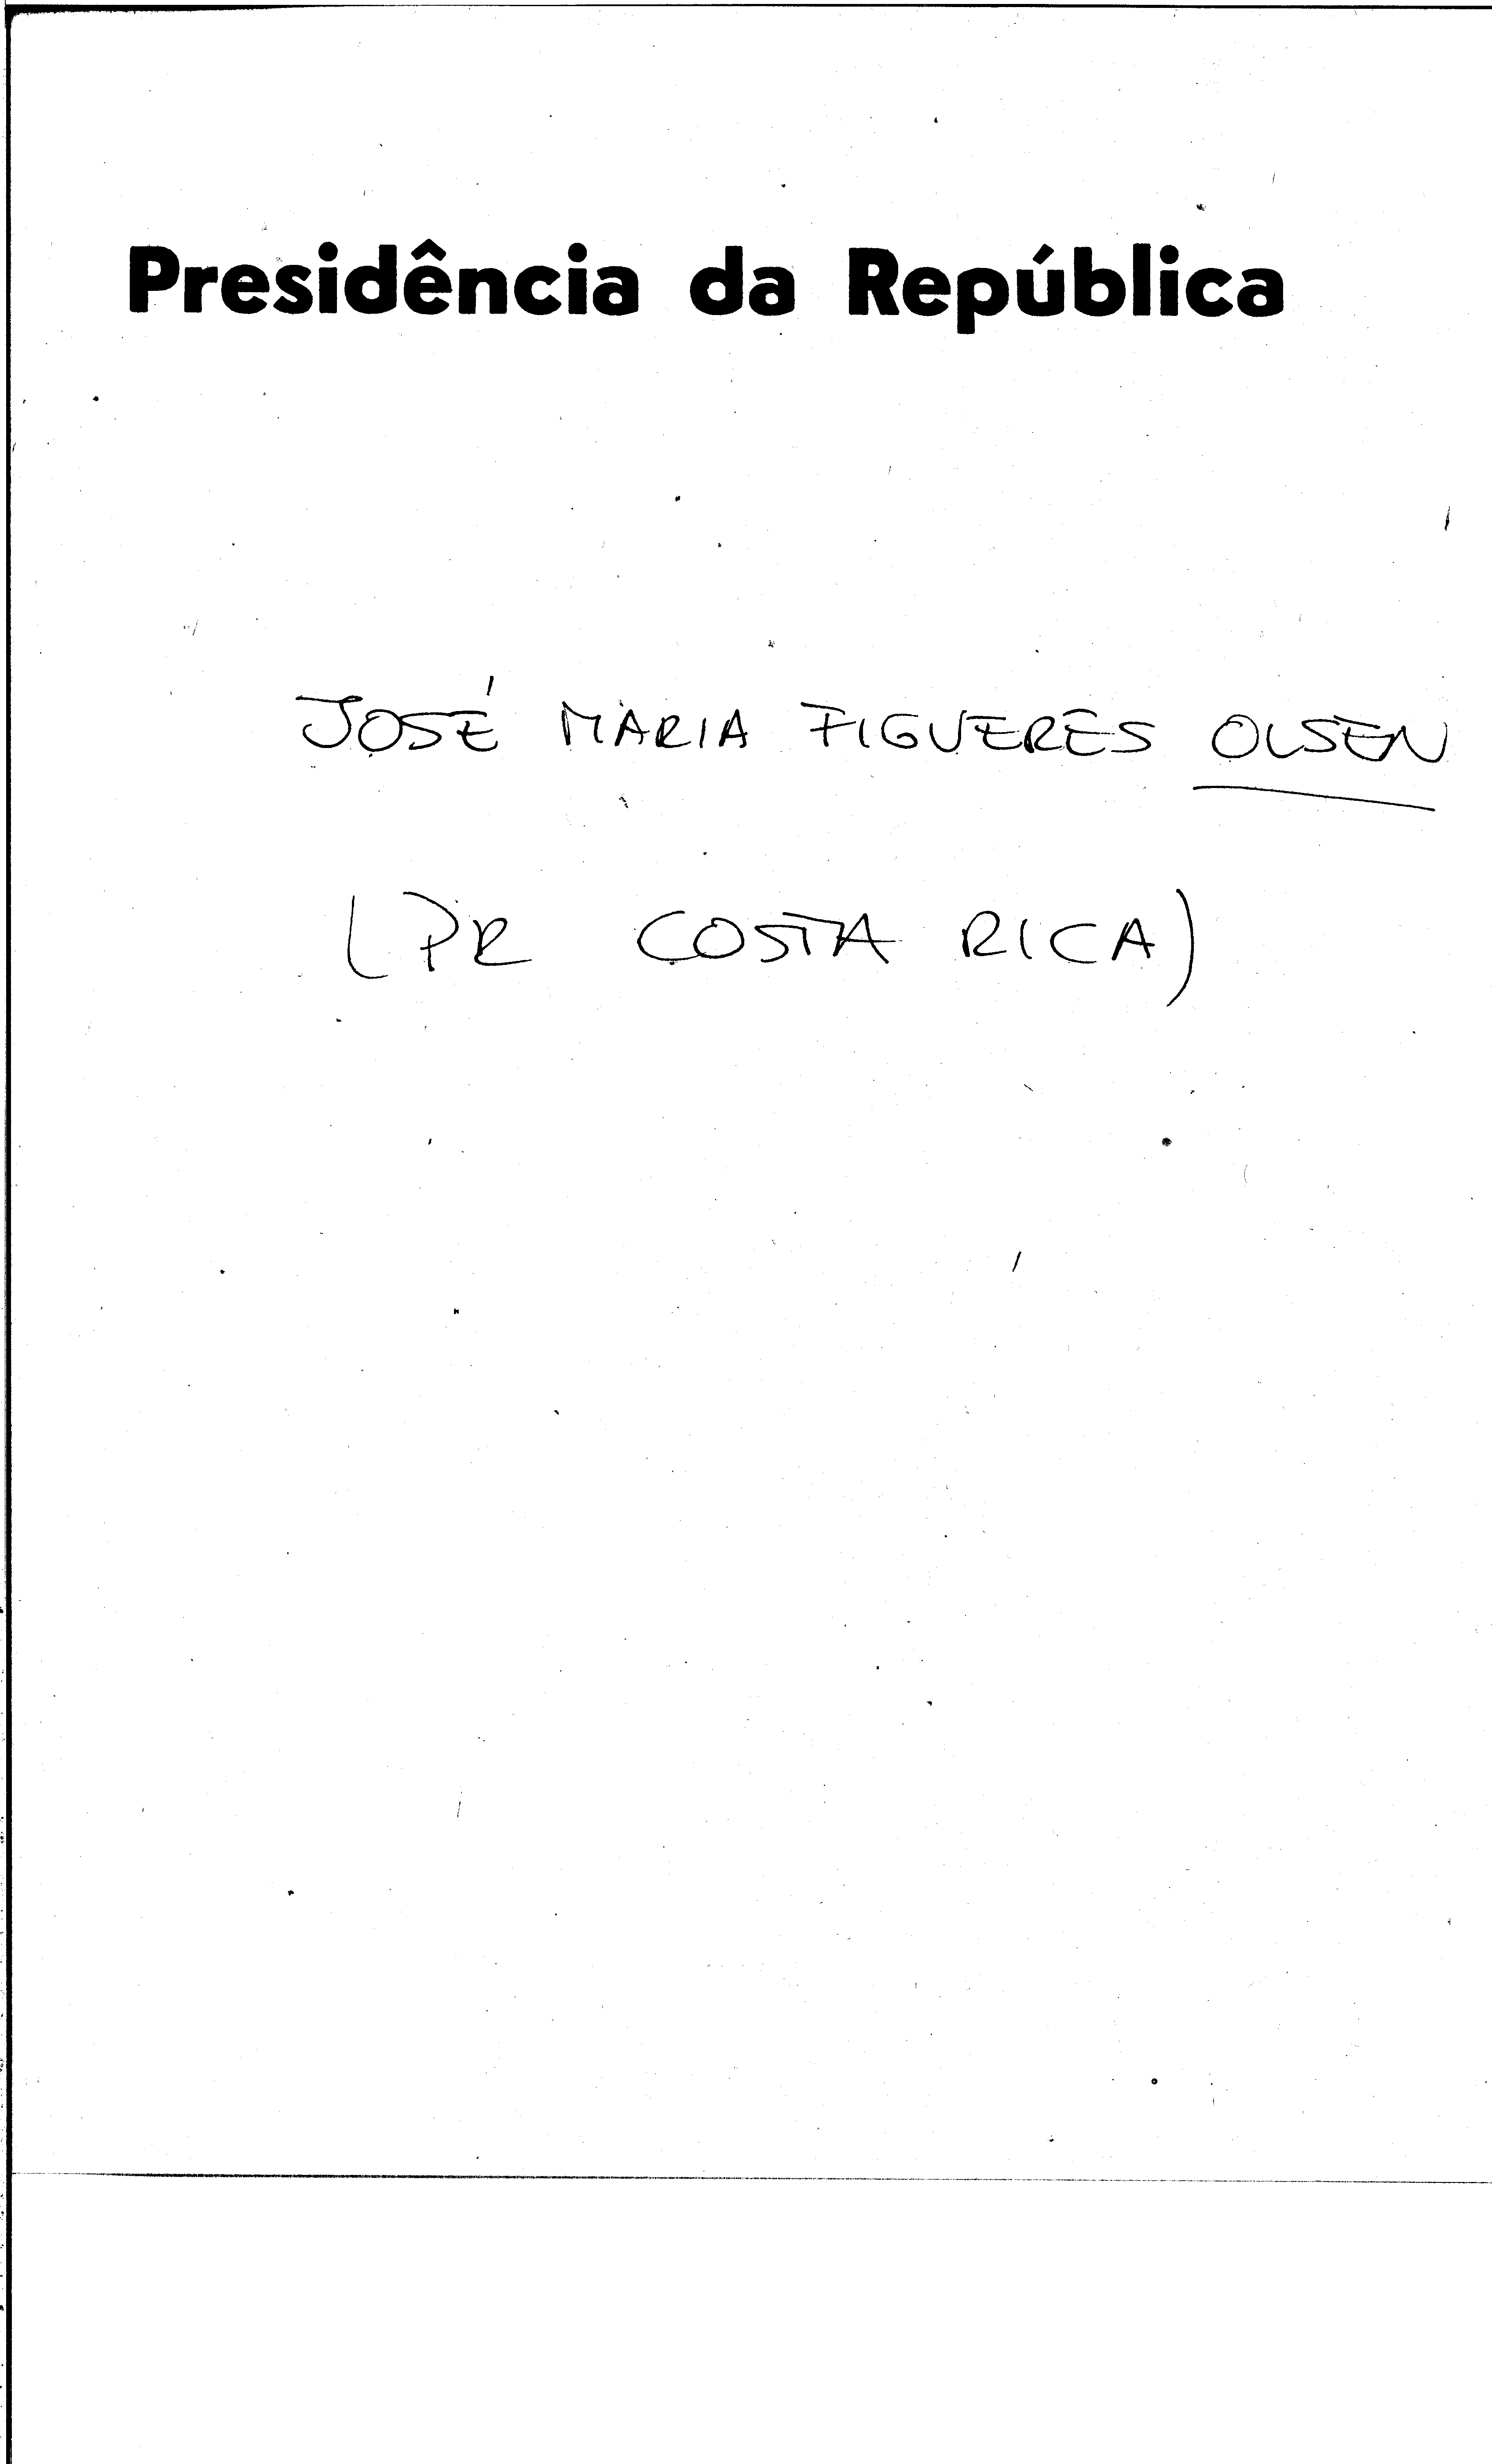 Presidência da República
JOSÉ MARIA FIGUERES OLSEN
(PR COSTA RICA)